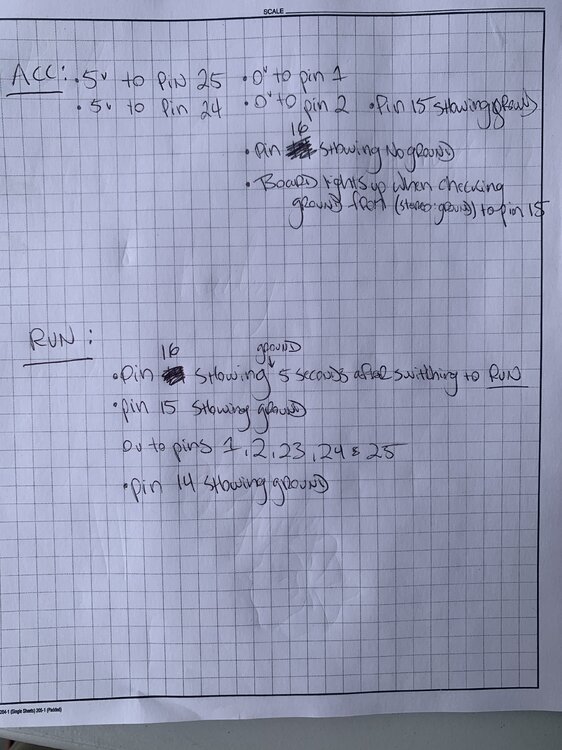 SCALE
ACC: • 5v to PiN 25 • 0v to pin 1
• 5v to Pin 24 • 0v to pin 2 • Pin 15 showing ground
16
• Pin showing No ground
• Board lights up when checking
ground from (stereo ground) to pin 15
RUN:
16 ground
• Pin showing 5 seconds after switching to RUN
• pin 15 showing ground
0v to pins 1, 2, 23, 24 & 25
• pin 14 showing ground
(Single Sheets) (Padded)